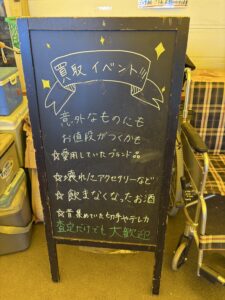 買取イベント!!
意外なものにも
お値段がつくかも
☆愛用していたブランド品
☆壊れたアクセサリーなど
☆飲まなくなったお酒
☆昔集めていた切手やテレカ
査定だけでも大歓迎